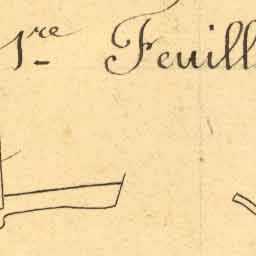 1re Feuill